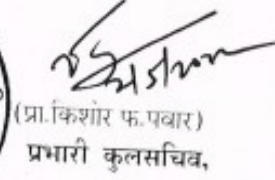 (प्रा.किशोर फ.पवार)
प्रभारी कुलसचिव,